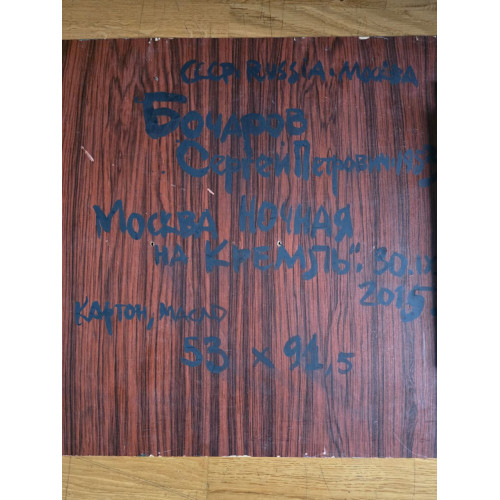 СССР. RUSSIA. МОСКВА
БОЧАРОВ
СЕРГЕЙ ПЕТРОВИЧ
МОСКВА НОЧНАЯ
НА КРЕМЛЬ". 30.
2015.
КАРТОН, МАСЛО
53 x 91,5